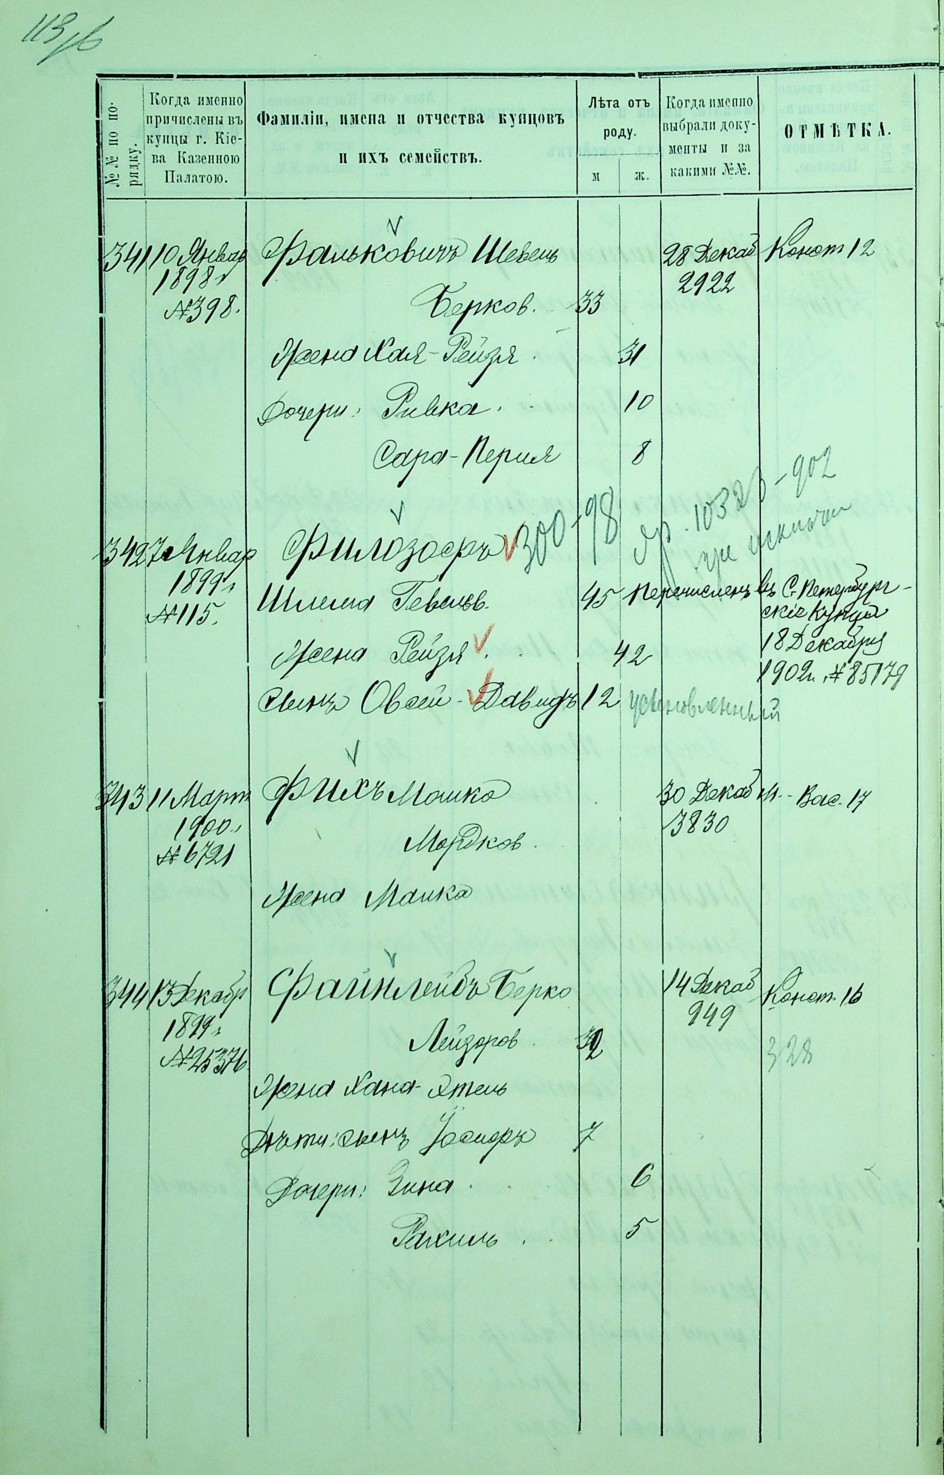 113
№№ по по-
рядку.
Когда именно
причислены въ
купцы г. Кіе-
ва Казенною
Палатою.
Фамиліи, имена и отчества купцовъ
и ихъ семействъ.
Лѣта отъ
роду.
м
ж.
Когда именно
выбрали доку-
менты и за
какими №№.
ОТМѢТКА.
341 10 Январ Фальковичъ Шевель 28 Декаб Конст. 12
1898 г. 2922
№398. Берков. 33
Жена Хая-Рейзя 31
Дочери: Ривка. 10
Сара-Перля 8
300-98 10326-902
342 7 Январ Филозофъ
1899 г. Шлема 45 Перечисленъ въ С. Петербург-
№115. скіе купцы
Жена Рейзя. 42 18 Декабря
1902 г. №85179
Сынъ Овсей-Давидъ 12 усыновленный
343 11 Март Фихъ Мошко 30 Декаб М.-Вас. 17
1900 г. 3830
№6721 Мордков.
Жена Малка
344 13 Декабр Файнлейбъ Берко 14 Декаб Конст. 16
1899 г. 949
№25376 Лейзоров. 32 328
Жена Хана-Этель
Дѣти: сынъ 7
Дочери: Зина. 6
Рахиль. 5